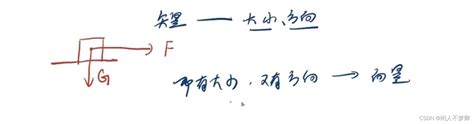 矢量 —— 大小、方向
F
G
即有大小，又有方向 → 向量
CSDN @闲人不梦卿